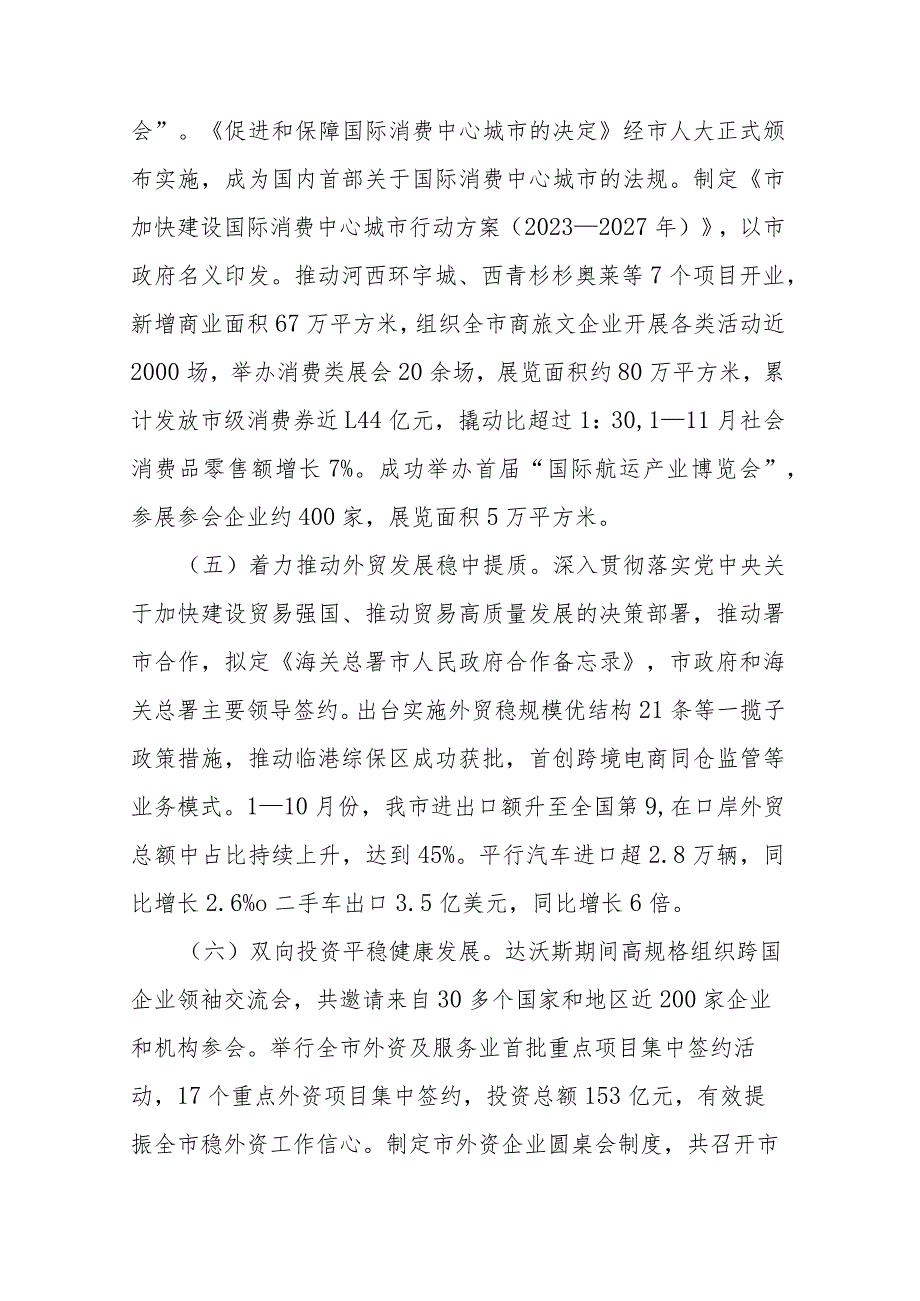 会”。《促进和保障国际消费中心城市的决定》经市人大正式颁
布实施，成为国内首部关于国际消费中心城市的法规。制定《市
加快建设国际消费中心城市行动方案（2023—2027年）》，以市
政府名义印发。推动河西环宇城、西青杉杉奥莱等7个项目开业，
新增商业面积67万平方米，组织全市商旅文企业开展各类活动近
2000场，举办消费类展会20余场，展览面积约80万平方米，累
计发放市级消费券近L44亿元，撬动比超过1：30,1—11月社会
消费品零售额增长7%。成功举办首届“国际航运产业博览会”，
参展参会企业约400家，展览面积5万平方米。
（五）着力推动外贸发展稳中提质。深入贯彻落实党中央关
于加快建设贸易强国、推动贸易高质量发展的决策部署，推动署
市合作，拟定《海关总署市人民政府合作备忘录》，市政府和海
关总署主要领导签约。出台实施外贸稳规模优结构21条等一揽子
政策措施，推动临港综保区成功获批，首创跨境电商同仓监管等
业务模式。1—10月份，我市进出口额升至全国第9,在口岸外贸
总额中占比持续上升，达到45%。平行汽车进口超2.8万辆，同
比增长2.6%o二手车出口3.5亿美元，同比增长6倍。
（六）双向投资平稳健康发展。达沃斯期间高规格组织跨国
企业领袖交流会，共邀请来自30多个国家和地区近200家企业
和机构参会。举行全市外资及服务业首批重点项目集中签约活
动，17个重点外资项目集中签约，投资总额153亿元，有效提
振全市稳外资工作信心。制定市外资企业圆桌会制度，共召开市